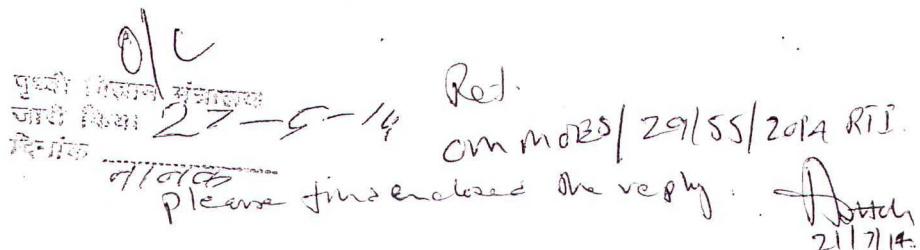 O/C
पृथ्वी विज्ञान मंत्रालय
जारी किया 27-5-14
दिनांक
नानक
Ref.
OM MOES/29/55/2014 RTI.
please find enclosed the reply.
21/7/14